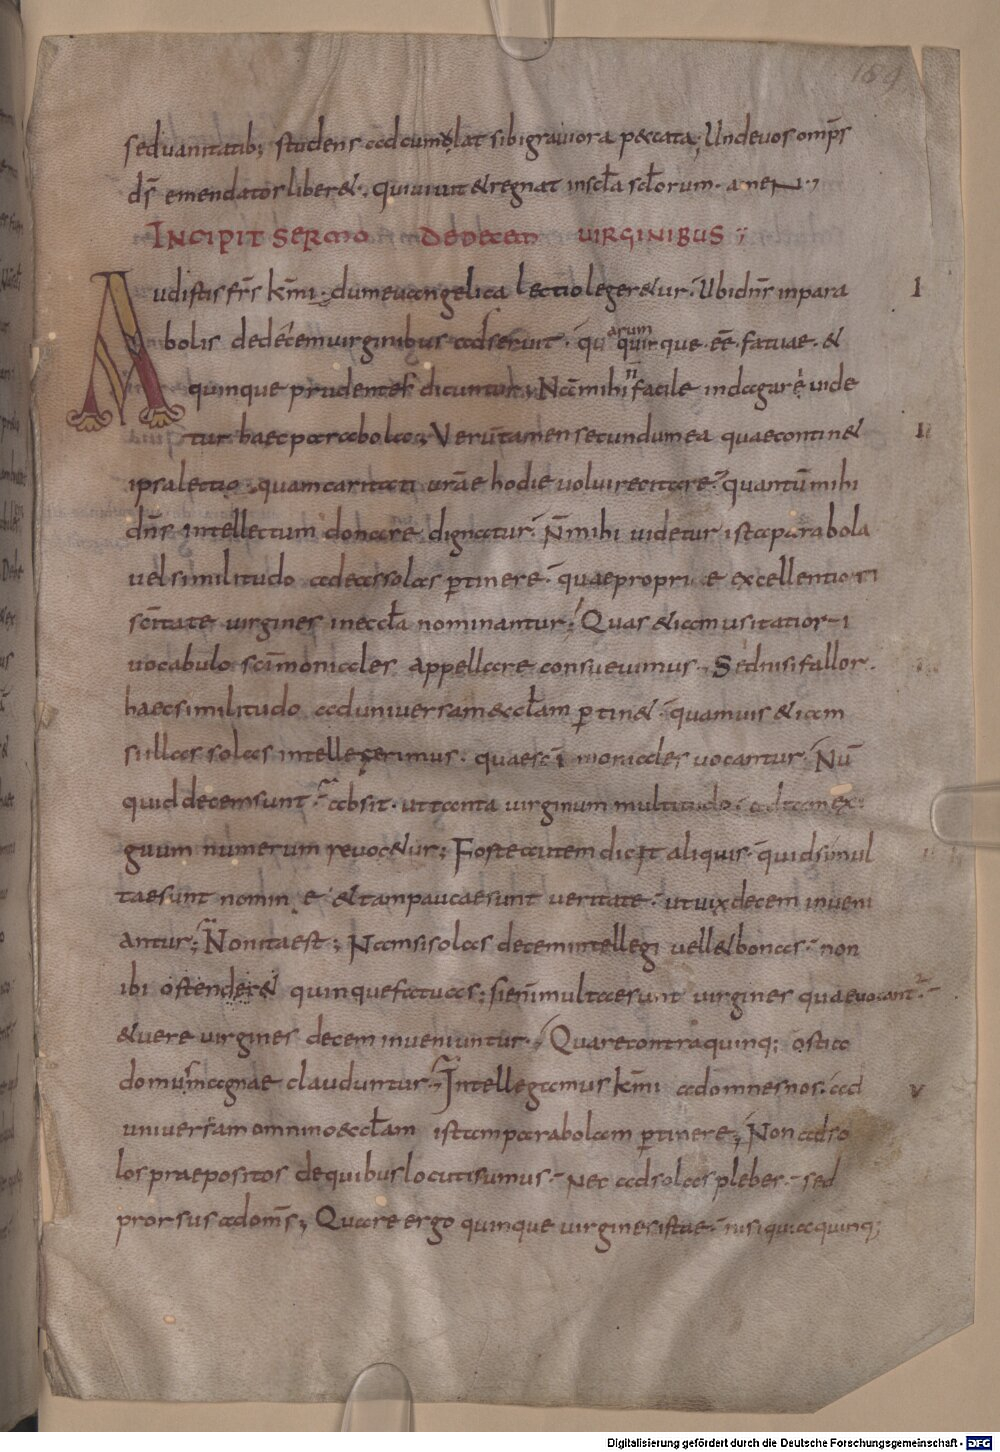 189
sed vanitatib; studens ad cumulat sibi graviora peccata; Unde vos omps
ds emendatos liberet. qui vivit et regnat in scla sclorum. amen.,
INCIPIT SERMO DE DECEM VIRGINIBUS ;
Audistis frs kmi. dum evangelica lectio legeretur. Ubi dns in para I
bolis de dece virginibus adseruit. quarum quinque ee fatuae. et
quinque prudentes dicuntur; Nam mihi n facile indagare vide
tur haec parabola; Verutamen secundum ea quae continet I
ipsa lectio. quam caritati vrae hodie volui recitare. quantu mihi
dns intellectum donare dignatur. N mihi videtur ista parabola
vel similitudo ad eas solas ptinere. quae propri e excellentiori
scitate virgines in eccla nominantur. Quas etiam usitatiori
vocabulo scimoniales appellare consuevimus. Sed nisi fallor.
haec similitudo ad universam ecclam ptinet. quamvis etiam
si illas solas intellexerimus. quae sci moniales vocantur. Nu
quid decem sunt. absit. ut tanta virginum multitudo. ad tam exi
guum numerum revocetur; Forte autem dicit aliquis. quid si mul
tae sunt nomin e et tam paucae sunt veritate. ut vix decem inveni
antur; Non ita est; Nam si solas decem intellegi vellet bonas. non
ibi ostenderet quinque fatuas; si enim multae sunt virgines quae vocant.
et vere virgines decem inveniuntur. Quare contra quinq; ostia
domus magnae clauduntur. Intellegamus kmi ad omnes nos. ad V
universam omnino ecclam istam parabolam ptinere; Non ad so
los praepositos de quibus locuti sumus. nec ad solas plebes. sed
prorsus ad oms; Quare ergo quinque virgines istae. nisi quia quinq;
Digitalisierung gefördert durch die Deutsche Forschungsgemeinschaft - DFG